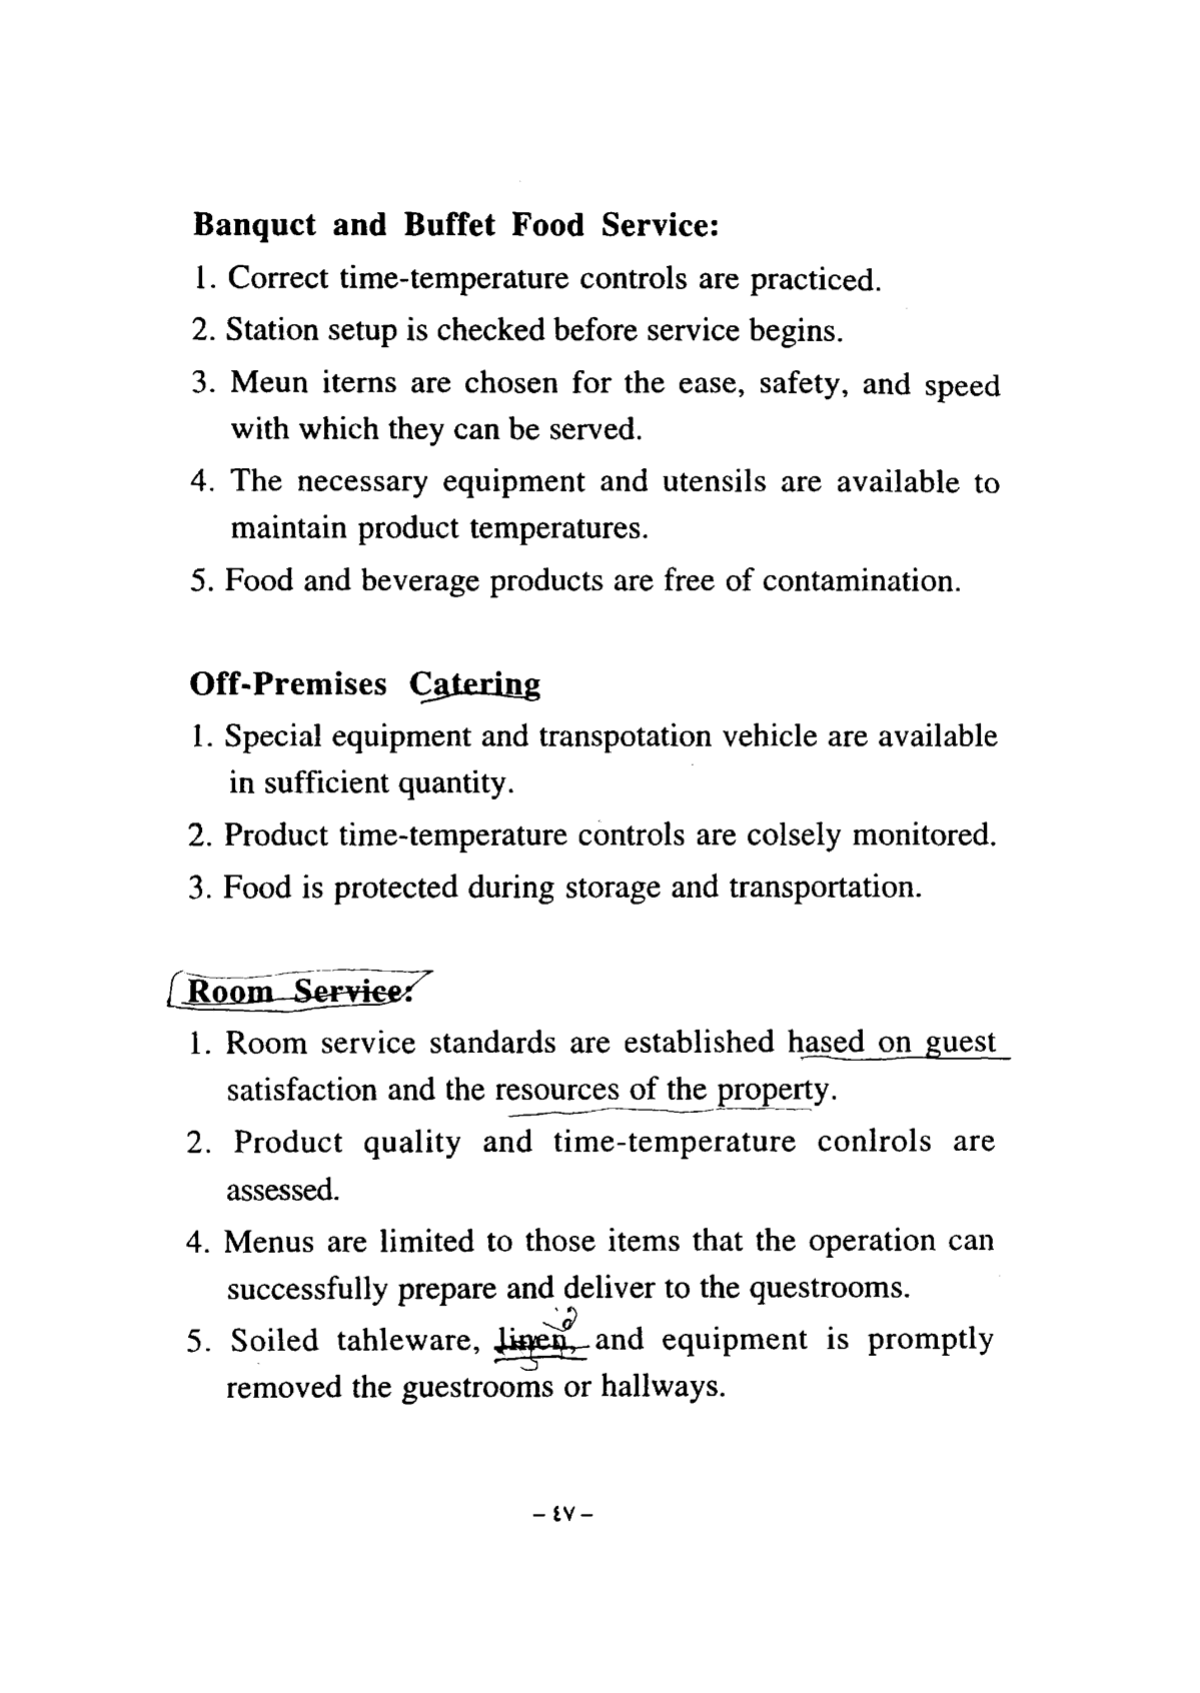 Banquct and Buffet Food Service:
1. Correct time-temperature controls are practiced.
2. Station setup is checked before service begins.
3. Meun iterns are chosen for the ease, safety, and speed
with which they can be served.
4. The necessary equipment and utensils are available to
maintain product temperatures.
5. Food and beverage products are free of contamination.
Off-Premises Catering
1. Special equipment and transpotation vehicle are available
in sufficient quantity.
2. Product time-temperature controls are colsely monitored.
3. Food is protected during storage and transportation.
Room Service:
1. Room service standards are established hased on guest
satisfaction and the resources of the property.
2. Product quality and time-temperature conlrols are
assessed.
4. Menus are limited to those items that the operation can
successfully prepare and deliver to the questrooms.
5. Soiled tahleware, linen, and equipment is promptly
removed the guestrooms or hallways.
– ٤٧ –